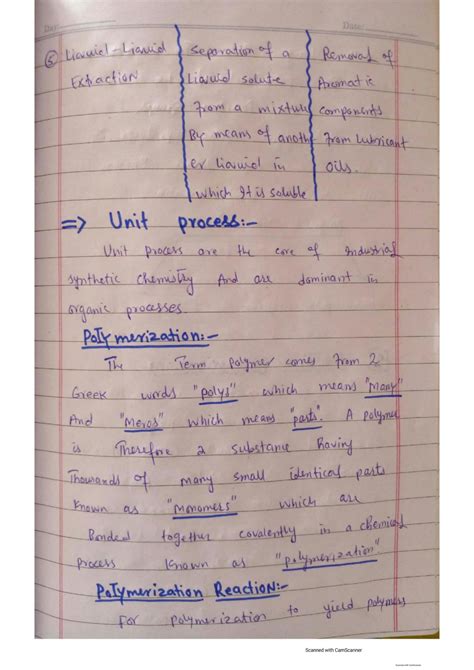 Day: Date:
⑥ Liquid-Liquid Separation of a Removal of
Extraction Liquid solute Aromatic
From a mixture components
By means of anoth From lubricant
er liquid in oils.
which It is soluble
=> Unit process:-
Unit Process are the core of Industrial
synthetic chemistry And are dominant in
organic processes.
Polymerization:-
The Term polymer comes From 2
Greek words "polys" which means "many"
And "Meros" which means "parts". A polymer
is Therefore a substance having
Thousands of many small identical parts
known as "Monomers" which are
Bonded together covalently in a chemical
process known as "polymerization".
Polymerization Reaction:-
For polymerization to yield polymers
Scanned with CamScanner